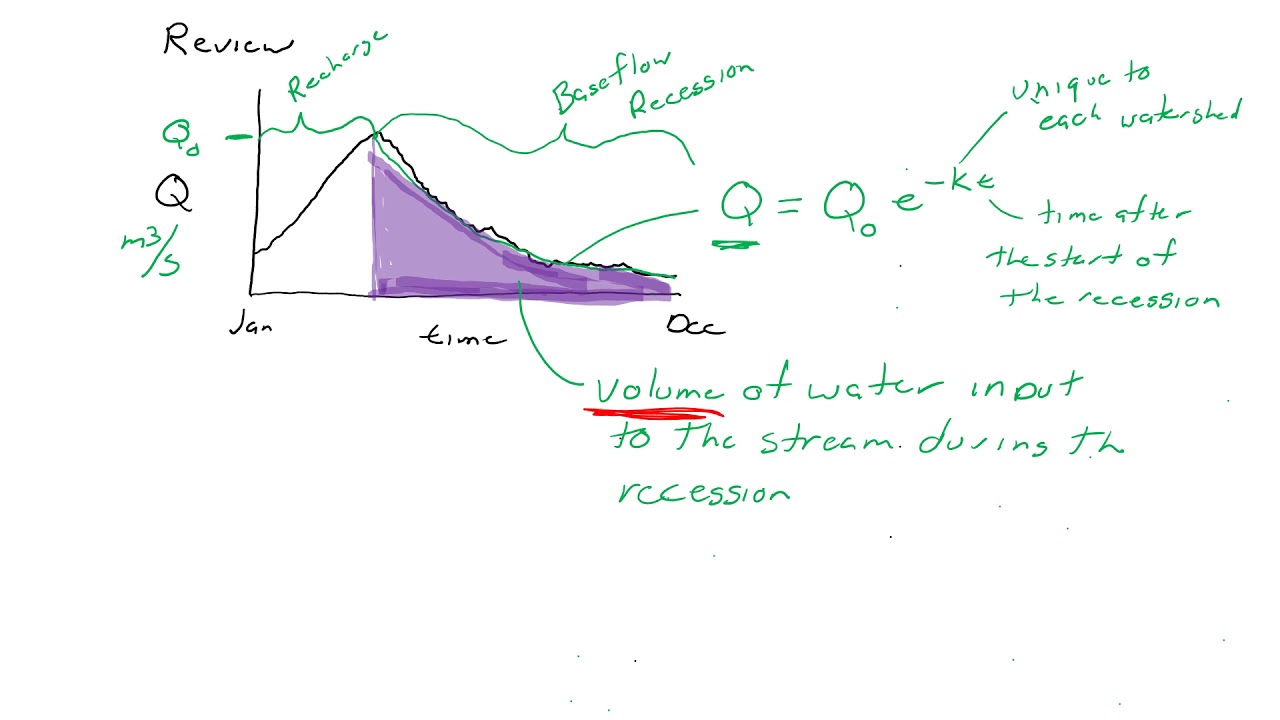 Review
Recharge
Baseflow
Recession
unique to
each watershed
Q₀
Q
m3/s
Q = Q₀ e^-kt
time after
the start of
the recession
Jan
time
Dec
volume of water input
to the stream during th
recession